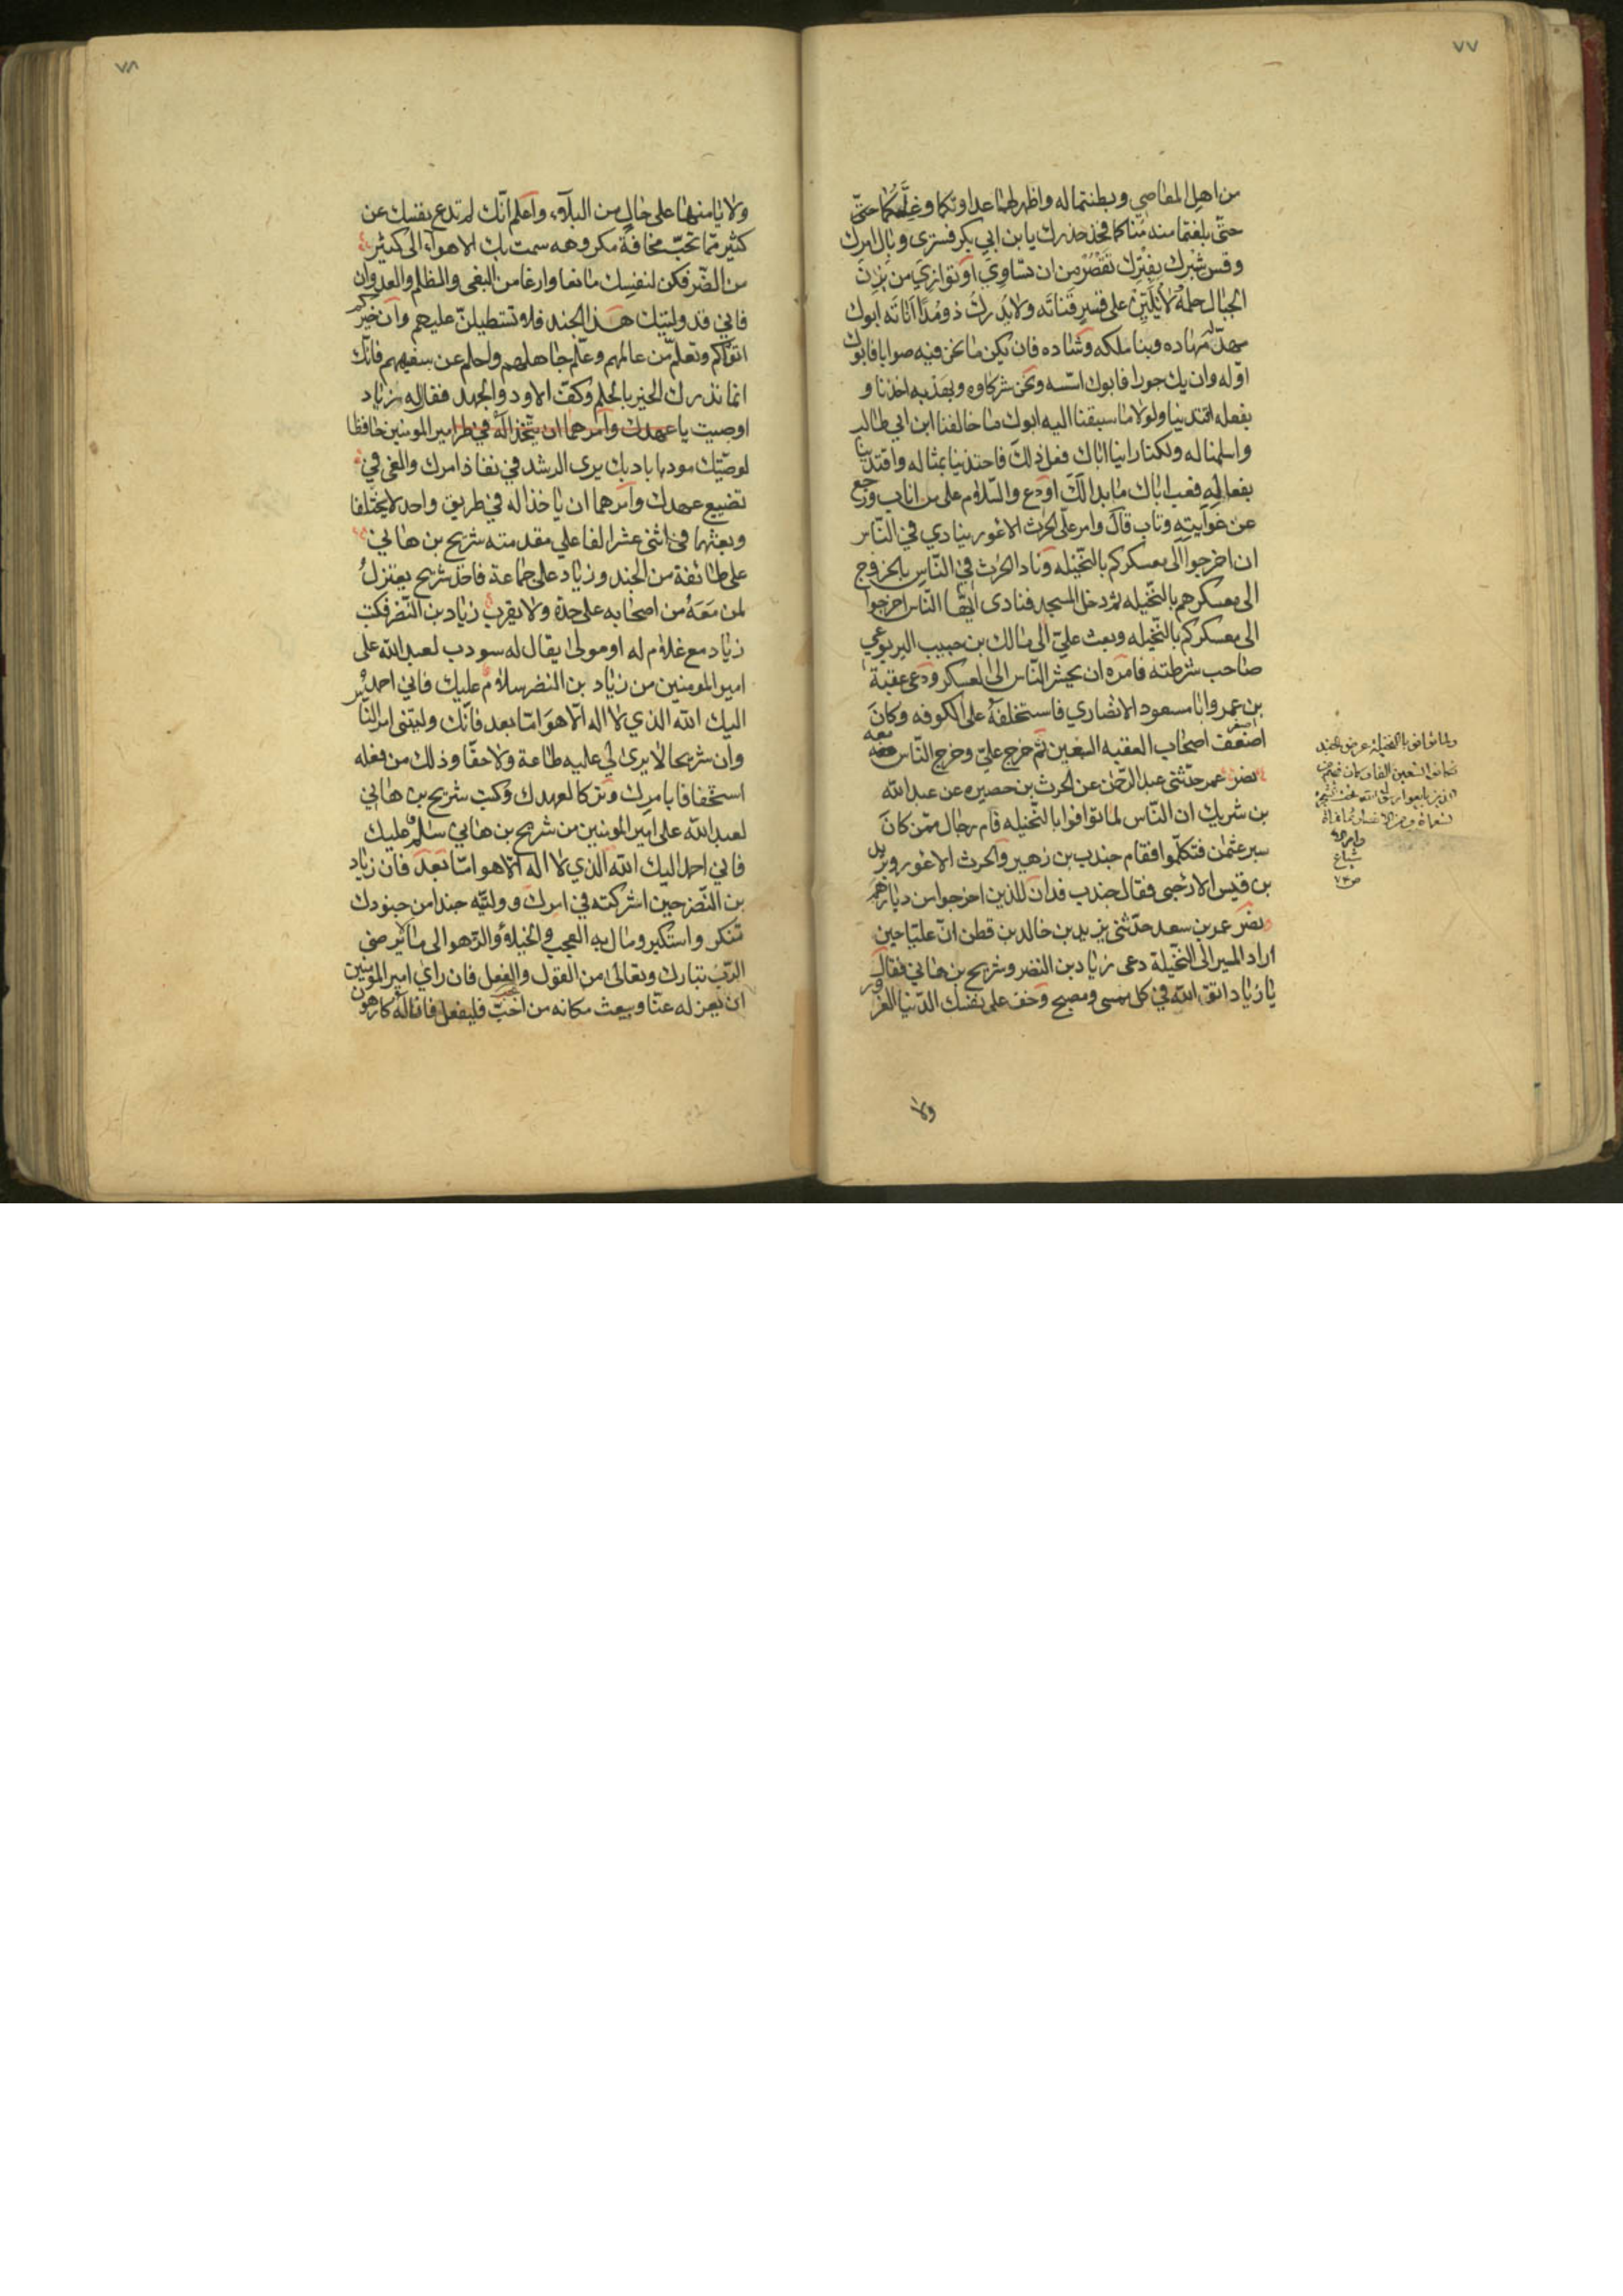 ٧٧
من اهل المعاصي وبطنتما له واظهرتما عداوتكما وغلكما حتى
حتى بلغتما منه مناكما فخذ حذرك يا بن ابي بكر فسترى وبال امرك
وقس شبرك بفترك تقصر من ان تساوي او توازي من يزن
الجبال حلمه لا يلين على قسر قناته ولا يدرك ذو مدا اناته ابوك
مهد له مهاده وبنا ملكه وشاده فان يكن ما نحن فيه صوابا فابوك
اوله وان يك جورا فابوك اسسه ونحن شركاوه وبهديه اخذنا و
بفعله اقتدينا ولولا ما سبقنا اليه ابوك ما خالفنا ابن ابي طالب
واسلمنا له ولكنا راينا اباك فعل ذلك فاحتذينا بمثاله واقتدينا
بفعاله فعب اباك ما بدا لك او دع والسلام على من اناب ورجع
عن غوايته وتاب قال وامر علي الحرث الاعور ينادي في الناس
ان اخرجوا الى معسكركم بالنخيله وناد الحرث في الناس بالخروج
الى معسكرهم بالنخيله ثم دخل المسجد فنادى ايها الناس اخرجوا
الى معسكركم بالنخيله وبعث علي الى مالك بن حبيب اليربوعي
صاحب شرطته فامره ان يحشر الناس الى العسكر ودعى عقبة
بن عمرو ابا مسعود الانصاري فاستخلفه على الكوفه وكان
اصغر اصحاب العقبه السبعين ثم خرج علي وخرج الناس معه
نصر عمر حدثني عبد الرحمن عن الحرث بن حصيره عن عبد الله
بن شريك ان الناس لما توافوا بالنخيله قام رجال ممن كان
سير عثمن فتكلموا فقام جندب بن زهير والحرث الاعور ويزيد
بن قيس الارحبي فقال جندب قد ان للذين اخرجوا من ديارهم
نصر عمر بن سعد حدثني يزيد بن خالد بن قطن ان عليا حين
اراد المسير الى النخيلة دعى زياد بن النضر وشريح بن هاني فقال
يا زياد اتق الله في كل ممسى ومصبح وخف على نفسك الدنيا الغرور
ولا
٧٨
ولا تامنها على حال من البلاء واعلم انك لم تدع نفسك عن
كثير مما تحب مخافة مكروهه سمت بك الاهواء الى كثير
من الضر فكن لنفسك مانعا وازعا من البغى والظلم والعدوان
فاني قد وليتك هذا الجند فلا تستطيلن عليهم وان خيركم
اتقاكم وتعلم من عالمهم وعلم جاهلهم واحلم عن سفيههم فانك
انما تدرك الخير بالحلم وكف الاود والجهد فقال له زياد
اوصيت يا عهدك وامرهما ان يتخذا له في طر امير المومنين حافظا
لوصيتك مودبا بادبك يرى الرشد في نفاذ امرك والغي في
تضييع عهدك وامرهما ان ياخذا له في طريق واحد لا يختلفا
وبعثهما في اثنى عشر الفا على مقدمته شريح بن هاني
على طائفة من الجند وزياد على جماعة فاخذ شريح يعتزل
لمن معه من اصحابه على حدة ولا يقرب زياد بن النضر فكتب
زياد مع غلام له او مولى يقال له سودب لعبد الله على
امير المومنين من زياد بن النضر سلام عليك فاني احمد
اليك الله الذي لا اله الا هو اما بعد فانك وليتني امر الناس
وان شريحا لا يرى لي عليه طاعة ولا حقا وذلك من فعله
استخفافا بامرك وتركا لعهدك وكتب شريح بن هاني
لعبد الله على امير المومنين من شريح بن هاني سلام عليك
فاني احمد اليك الله الذي لا اله الا هو اما بعد فان زياد
بن النضر حين اشركته في امرك ووليته جندا من جنودك
تنكر واستكبر ومال به العجب والخيلاء والزهو الى ما لا يرضى
الرب تبارك وتعالى من القول والفعل فان راي امير المومنين
ان يعزله عنا ويبعث مكانه من احب فليفعل فانا له كارهون